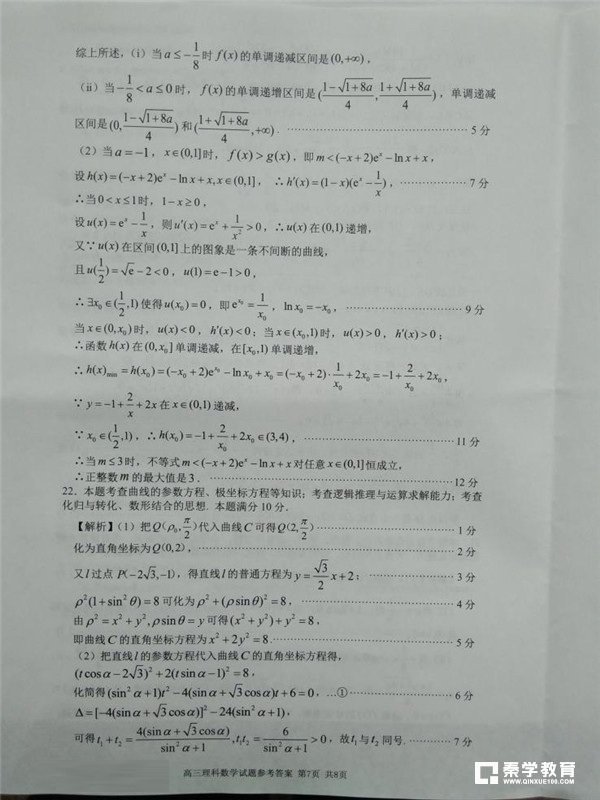 综上所述，(i) 当 a ≤ -1/8 时 f(x) 的单调递减区间是 (0,+∞)，
(ii) 当 -1/8 < a ≤ 0 时， f(x) 的单调递增区间是 ((1-√(1+8a))/4, (1+√(1+8a))/4)，单调递减
区间是 (0, (1-√(1+8a))/4) 和 ((1+√(1+8a))/4, +∞). …………………… 5 分
(2) 当 a = -1， x∈(0,1] 时， f(x) > g(x)，即 m < (-x+2)eˣ - ln x + x，
设 h(x) = (-x+2)eˣ - ln x + x, x∈(0,1]， ∴ h′(x) = (1-x)(eˣ - 1/x)，…………… 7 分
∴当 0 < x ≤ 1 时，1-x ≥ 0，
设 u(x) = eˣ - 1/x，则 u′(x) = eˣ + 1/x² > 0，∴ u(x) 在 (0,1) 递增，
又∵ u(x) 在区间 (0,1] 上的图象是一条不间断的曲线，
且 u(1/2) = √e - 2 < 0， u(1) = e - 1 > 0，
∴ ∃x₀∈(1/2,1) 使得 u(x₀) = 0，即 e^(x₀) = 1/x₀， ln x₀ = -x₀，…………………… 9 分
当 x∈(0,x₀) 时， u(x) < 0， h′(x) < 0；当 x∈(x₀,1) 时， u(x) > 0， h′(x) > 0；
∴函数 h(x) 在 (0,x₀] 单调递减，在 [x₀,1) 单调递增，
∴ h(x)min = h(x₀) = (-x₀+2)e^(x₀) - ln x₀ + x₀ = (-x₀+2)·1/x₀ + 2x₀ = -1 + 2/x₀ + 2x₀，
∵ y = -1 + 2/x + 2x 在 x∈(0,1) 递减，
∵ x₀∈(1/2,1)，∴ h(x₀) = -1 + 2/x₀ + 2x₀ ∈ (3,4)，…………………… 11 分
∴当 m ≤ 3 时，不等式 m < (-x+2)eˣ - ln x + x 对任意 x∈(0,1] 恒成立，
∴正整数 m 的最大值是 3．…………………… 12 分
22．本题考查曲线的参数方程、极坐标方程等知识；考查逻辑推理与运算求解能力；考查
化归与转化、数形结合的思想．本题满分 10 分．
【解析】(1) 把 Q(ρ₀, π/2) 代入曲线 C 可得 Q(2, π/2) …………………… 1 分
化为直角坐标为 Q(0,2)，…………………… 2 分
又 l 过点 P(-2√3,-1)，得直线 l 的普通方程为 y = (√3/2)x + 2；…………………… 3 分
ρ²(1+sin²θ) = 8 可化为 ρ² + (ρ sin θ)² = 8，…………………… 4 分
由 ρ² = x² + y², ρ sin θ = y 可得 (x² + y²) + y² = 8，
即曲线 C 的直角坐标方程为 x² + 2y² = 8．…………………… 5 分
(2) 把直线 l 的参数方程代入曲线 C 的直角坐标方程得，
(t cos α - 2√3)² + 2(t sin α - 1)² = 8，
化简得 (sin²α + 1)t² - 4(sin α + √3 cos α)t + 6 = 0，…①…………………… 6 分
Δ = [-4(sin α + √3 cos α)]² - 24(sin²α + 1)，
可得 t₁ + t₂ = 4(sin α + √3 cos α)/(sin²α + 1), t₁t₂ = 6/(sin²α + 1) > 0，故 t₁ 与 t₂ 同号．………… 7 分
高三理科数学试题参考答案 第7页 共8页
秦学教育
WWW.QINXUE100.COM